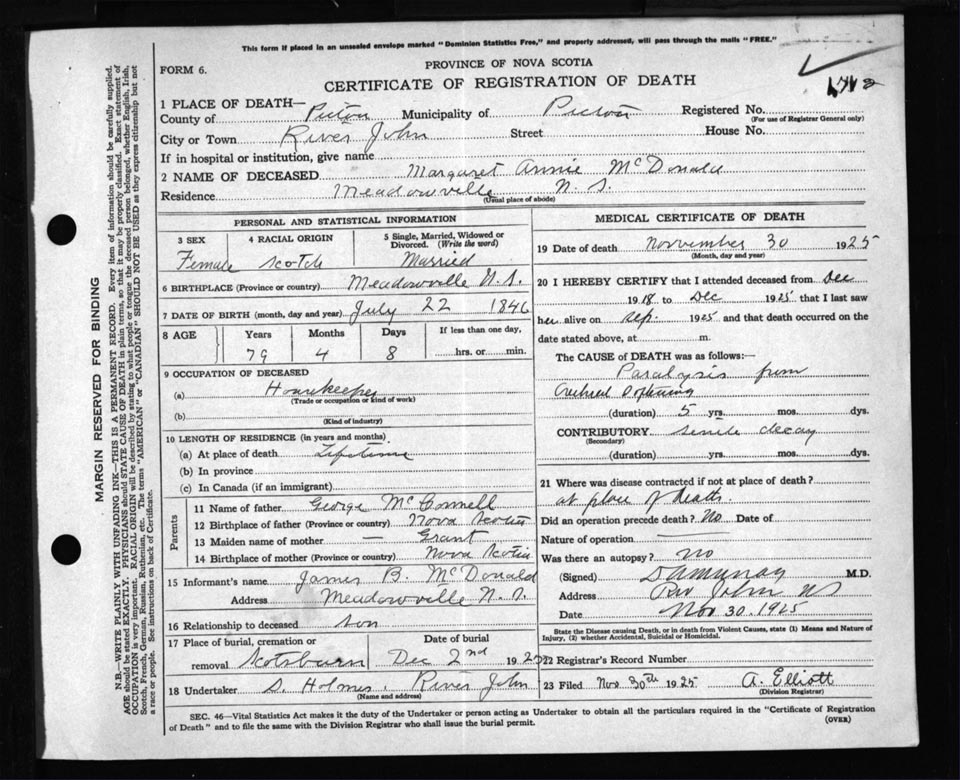 This form if placed in an unsealed envelope marked "Dominion Statistics Free," and properly addressed, will pass through the mails "FREE."
FORM 6.
PROVINCE OF NOVA SCOTIA
CERTIFICATE OF REGISTRATION OF DEATH
1 PLACE OF DEATH—
County of Pictou Municipality of Pictou Registered No.
(For use of Registrar General only)
City or Town River John Street House No.
If in hospital or institution, give name
2 NAME OF DECEASED Margaret Annie McDonald
Residence Meadowville N. S.
(Usual place of abode)
PERSONAL AND STATISTICAL INFORMATION
3 SEX 4 RACIAL ORIGIN 5 Single, Married, Widowed or Divorced. (Write the word)
Female Scotch Married
6 BIRTHPLACE (Province or country) Meadowville N. S.
7 DATE OF BIRTH (month, day and year) July 22 1846
8 AGE Years Months Days If less than one day,
79 4 8 hrs. or min.
9 OCCUPATION OF DECEASED
(a) Housekeeper
(Trade or occupation or kind of work)
(b)
(Kind of industry)
10 LENGTH OF RESIDENCE (in years and months)
(a) At place of death Lifetime
(b) In province
(c) In Canada (if an immigrant)
Parents
11 Name of father George McConnell
12 Birthplace of father (Province or country) Nova Scotia
13 Maiden name of mother — Grant
14 Birthplace of mother (Province or country) Nova Scotia
15 Informant's name James B. McDonald
Address Meadowville N. S.
16 Relationship to deceased son
17 Place of burial, cremation or Date of burial
removal Scotsburn Dec 2nd 1925
18 Undertaker S. Holmes, River John
(Name and address)
MEDICAL CERTIFICATE OF DEATH
19 Date of death November 30 1925
(Month, day and year)
20 I HEREBY CERTIFY that I attended deceased from Dec
1918 to Dec 1925 that I last saw
her alive on Sep. 1925 and that death occurred on the
date stated above, at m.
The CAUSE of DEATH was as follows:—
Paralysis from
(duration) 5 yrs. mos. dys.
CONTRIBUTORY senile decay
(Secondary)
(duration) yrs. mos. dys.
21 Where was disease contracted if not at place of death?
at place of death.
Did an operation precede death? No Date of
Nature of operation
Was there an autopsy? no
(Signed) M.D.
Address Riv John NS
Date Nov 30. 1925
State the Disease causing Death, or in death from Violent Causes, state (1) Means and Nature of
Injury, (2) whether Accidental, Suicidal or Homicidal.
22 Registrar's Record Number
23 Filed Nov. 30th 1925 A. Elliott
(Division Registrar)
SEC. 46—Vital Statistics Act makes it the duty of the Undertaker or person acting as Undertaker to obtain all the particulars required in the "Certificate of Registration
of Death" and to file the same with the Division Registrar who shall issue the burial permit.
(OVER)
MARGIN RESERVED FOR BINDING
N.B.—WRITE PLAINLY WITH UNFADING INK—THIS IS A PERMANENT RECORD. Every item of information should be carefully supplied.
AGE should be stated EXACTLY. PHYSICIANS should STATE CAUSE OF DEATH in plain terms, so that it may be properly classified. Exact statement of
OCCUPATION is very important. RACIAL ORIGIN will be described by stating to what people or tongue the deceased person belonged, whether English, Irish,
Scotch, French, German, Russian, Ruthenian, etc. The terms "AMERICAN" or "CANADIAN" SHOULD NOT BE USED as they express citizenship but not
a race or people. See instructions on back of Certificate.